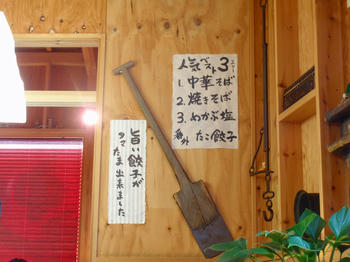 人気ベスト3
1. 中華そば
2. 焼きそば
3. めかぶ塩
番外 たこ餃子
旨い餃子が
タマタマ出来ました